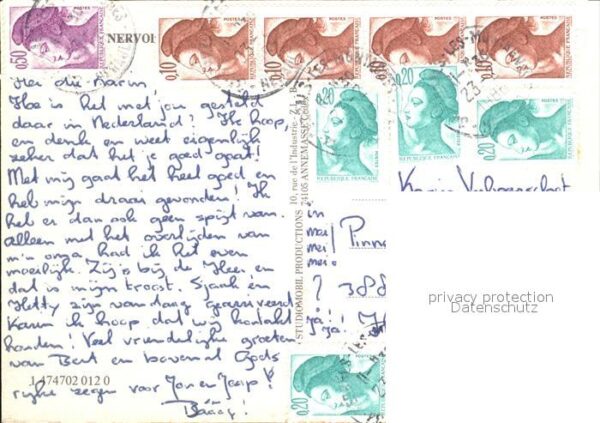 NERVO
Hoe is het met jou gesteld
daar in Nederland? Ik hoop
en denk en weet eigenlijk
zeker dat het je goed gaat!
Met mij gaat het heel goed en
heb mijn draai gevonden! Ik
heb er dan ook geen spijt van.
alleen met het overlijden van
m'n oma had ik het even
moeilijk. Zij is bij de Heer en
dat is mijn troost. Sjaak en
Hetty zijn vandaag gearriveerd
Karin ik hoop dat wij kontakt
houden! Veel vriendelijke groeten
van Bert en bovenal Gods
rijke zegen voor Jou en Jaap!
1 474702 012 0
STUDIOMOBIL PRODUCTIONS
10, rue de l'Industrie - Z.I.
74105 ANNEMASSE
Karin
Pinn
388
0,50
POSTES
0,10
POSTES
0,10
0,10
0,10
POSTES
0,20
REPUBLIQUE FRANÇAISE
0,20
REPUBLIQUE FRANÇAISE
0,20
REPUBLIQUE FRANÇAISE
0,20
privacy protection
Datenschutz